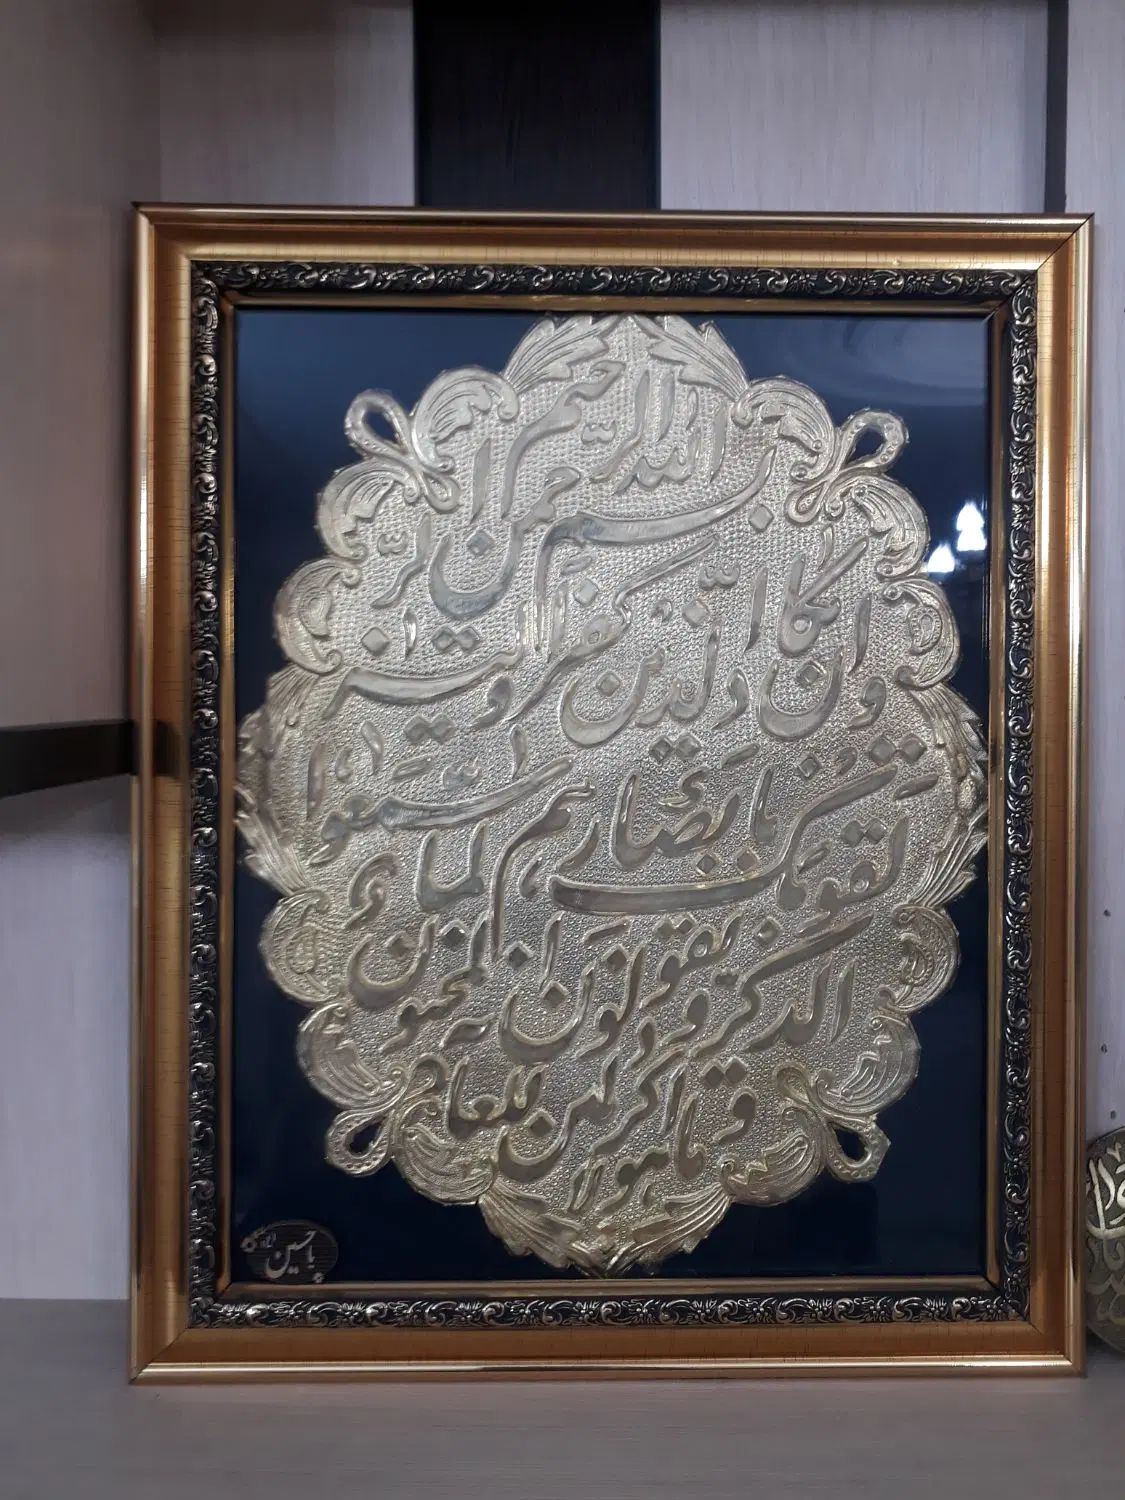 بسم الله الرحمن الرحیم
وان یکاد الذین کفروا لیز
لقونک بابصارهم لما سمعوا
الذکر و یقولون انه لمجنون
و ما هو الا ذکر للعالمین
یا حسین